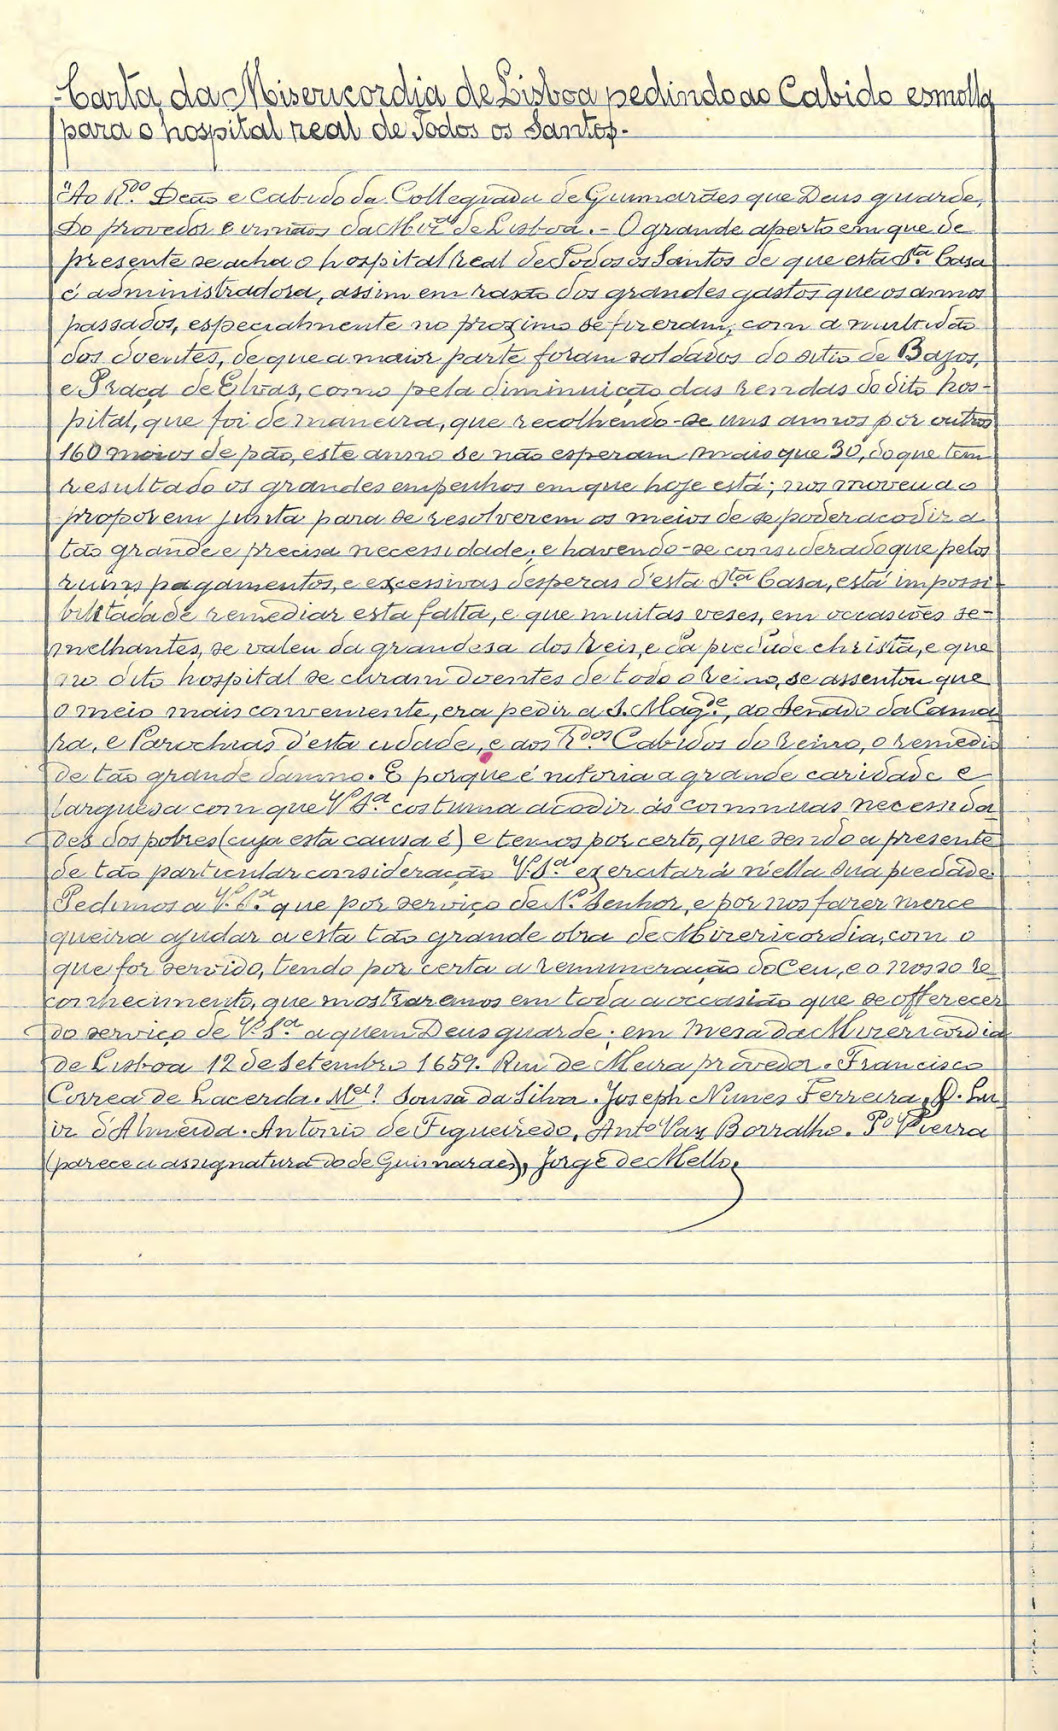 Carta da Misericordia de Lisboa pedindo ao Cabido esmolla
para o hospital real de Todos os Santos.
"Ao R.do Deão e Cabido da Collegiada de Guimarães que Deus guarde,
Do provedor e irmãos da Miz.a de Lisboa. - O grande aperto em que de
presente se acha o hospital Real de Todos os Santos de que esta S.ta Casa
é administradora, assim em rasão dos grandes gastos que os annos
passados, especialmente no proximo se fizeram, com a multidão
dos doentes, de que a maior parte foram soldados do sitio de
e Praça de Elvas, como pela diminuição das rendas do dito hos-
pital, que foi de maneira, que recolhendo-se uns annos por outros
160 moios de pão, este anno se não esperam mais que 30, do que tem
resultado os grandes empenhos em que hoje está; nos moveu a o
propor em junta para se resolverem os meios de se poder acodir a
tão grande e precisa necessidade; e havendo-se considerado que pelos
ruins pagamentos, e excessivas desperas d'esta S.ta Casa, está impossi
bilitada de remediar esta falta, e que muitas veses, em occasiões se-
melhantes, se valeu da grandesa dos Reis, e da piedade christã, e que
no dito hospital se curam doentes de todo o reino, se assentou que
o meio mais conveniente, era pedir a S. Mag.de, ao Senado da Cama
ra, e Parochias d'esta cidade, e aos R.dos Cabidos do reino, o remedio
de tão grande damno. E porque é notoria a grande caridade e
larguesa com que V. S.a costuma acodir ás communas necessida
des dos pobres (cuja esta causa é) e temos por certo, que sendo a presente
de tão particular consideração V. S.a exercitará n'ella sua piedade.
Pedimos a V. S.a que por serviço de N. Senhor, e por nos fazer merce
queira ajudar a esta tão grande obra de Mizericordia, com o
que for servido, tendo por certa a remuneração do Ceu, e o nosso re
conhecimento, que mostraremos em toda a occasião que se offerecer
do serviço de V. S.a a quem Deus guarde; em mesa da Mizericordia
de Lisboa 12 de Setembro 1659. Rui de Meira provedor. Francisco
Correa de Lacerda. M.el Sousa da Silva. Joseph Nunes Ferreira, D. Lu
iz d'Almeida. Antonio de Figueiredo, Anto Vaz Borralho. P.o Vieira
(parece a assignatura do de Guimaraes), Jorge de Mello.